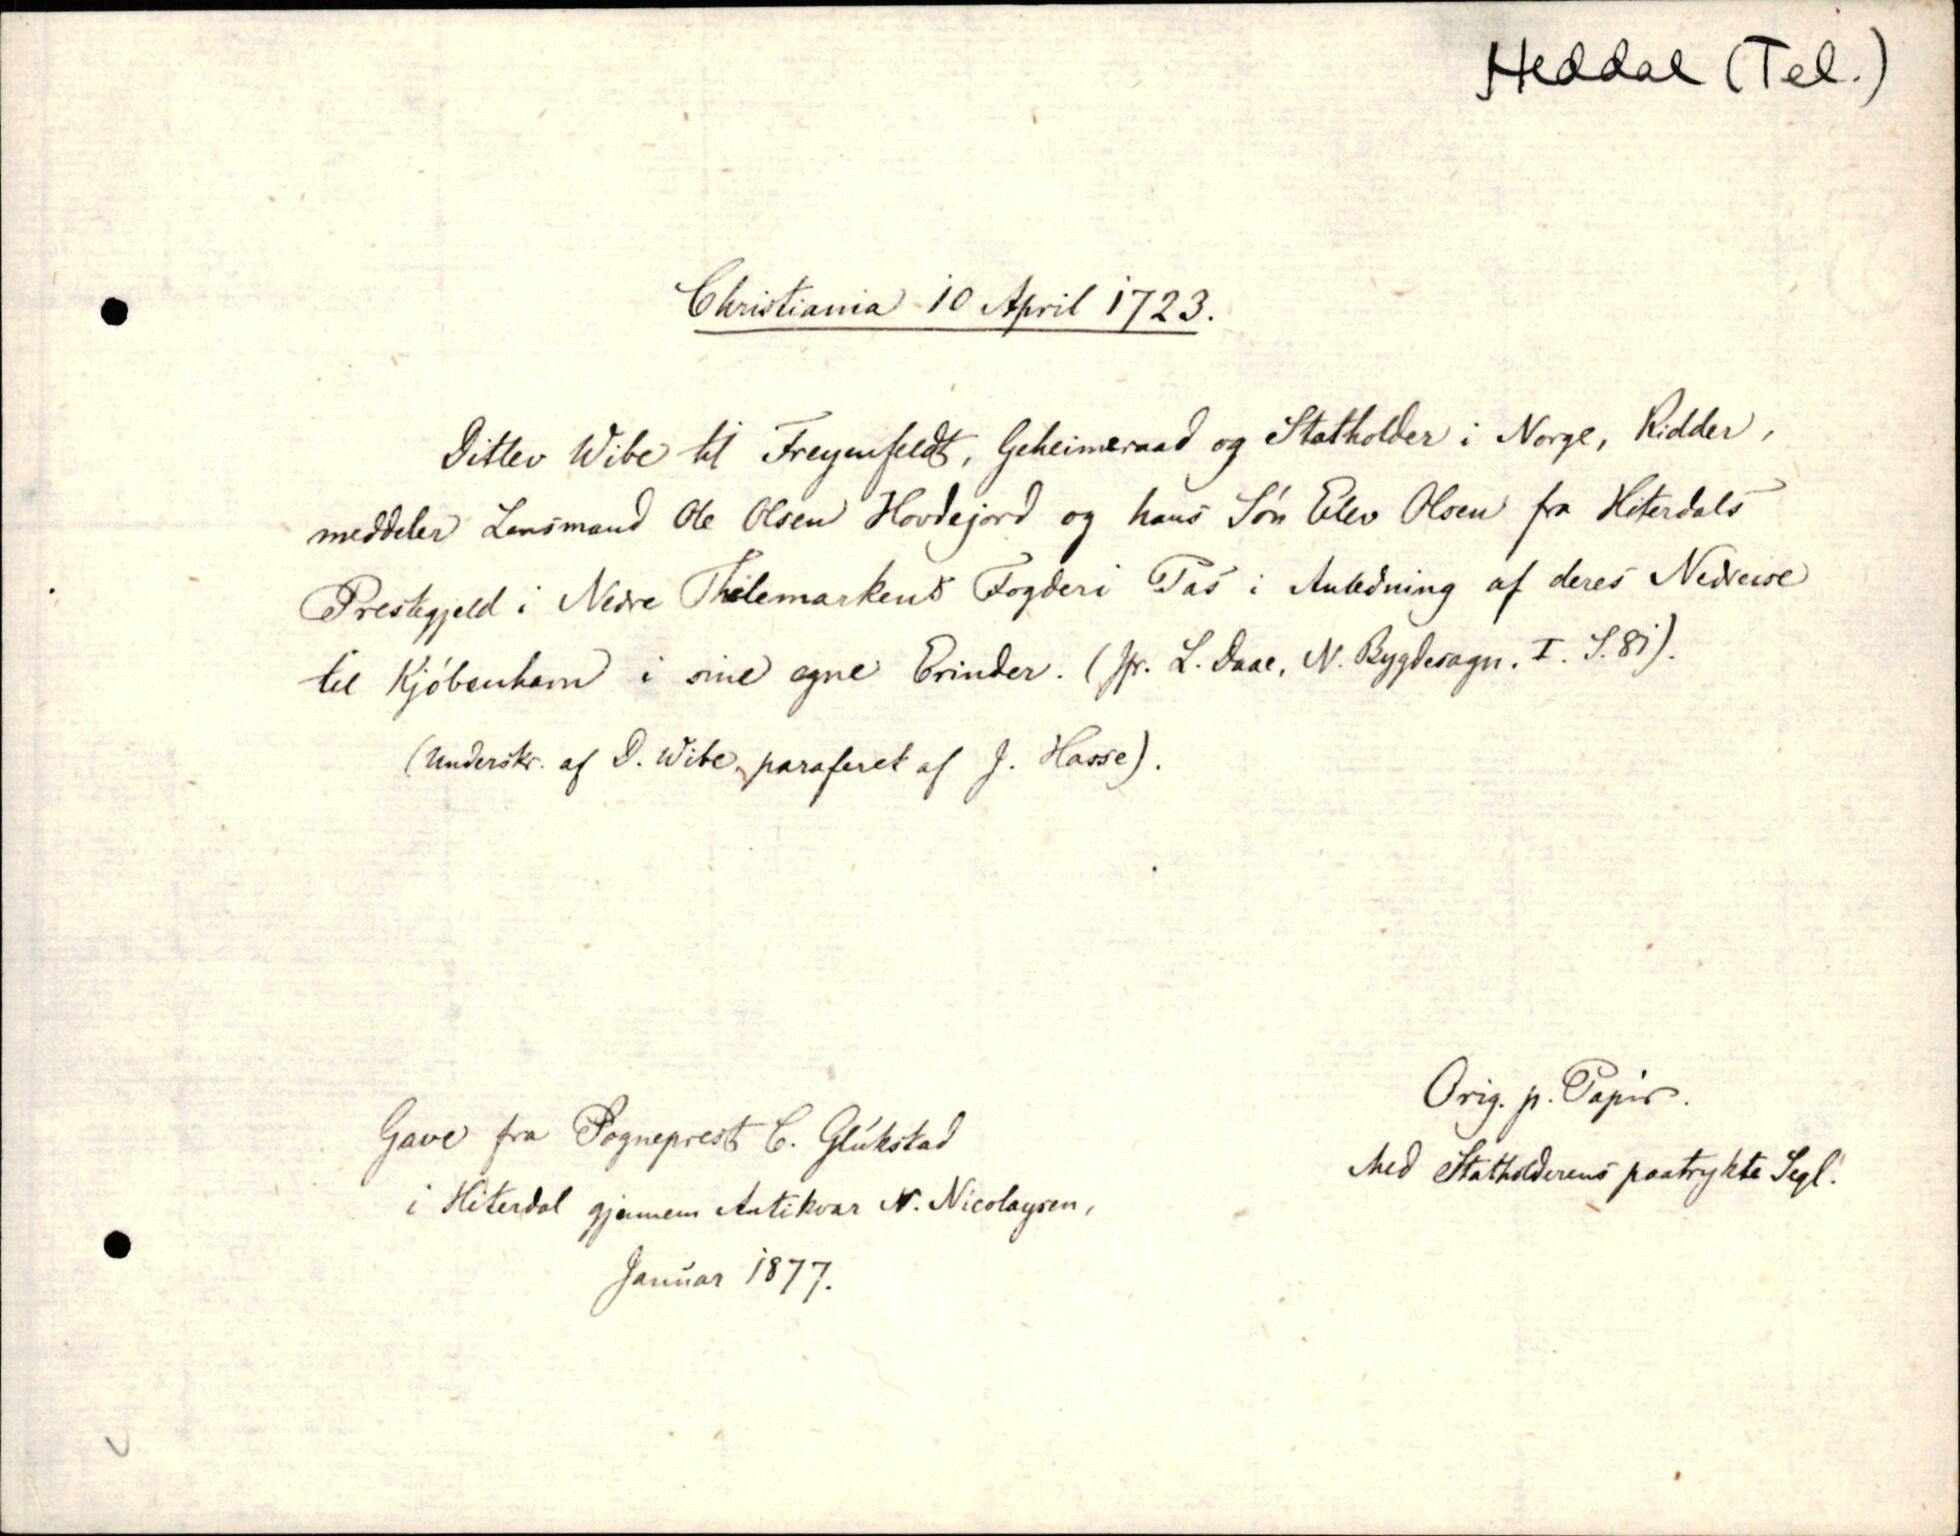 Heddal (Tel.)
Christiania 10 April 1723.
Ditlev Wibe til Freyenfeldt, Geheimeraad og Statholder i Norge, Ridder,
meddeler Lensmand Ole Olsen Hovdejord og hans Søn Elev Olsen fra Hiterdals
Prestegjeld i Nedre Thelemarkens Fogderi Pas i Anledning af deres Nedreise
til Kjøbenhavn i sine egne Erinder. (Jfr. L. Daae, N. Bygdesagn. I. S. 81).
(Underskr. af D. Wibe, paraferet af J. Hasse).
Orig. p. Papir.
Med Statholderens paatrykte Segl.
Gave fra Sogneprest C. Glükstad
i Hiterdal gjennem Antikvar N. Nicolaysen,
Januar 1877.